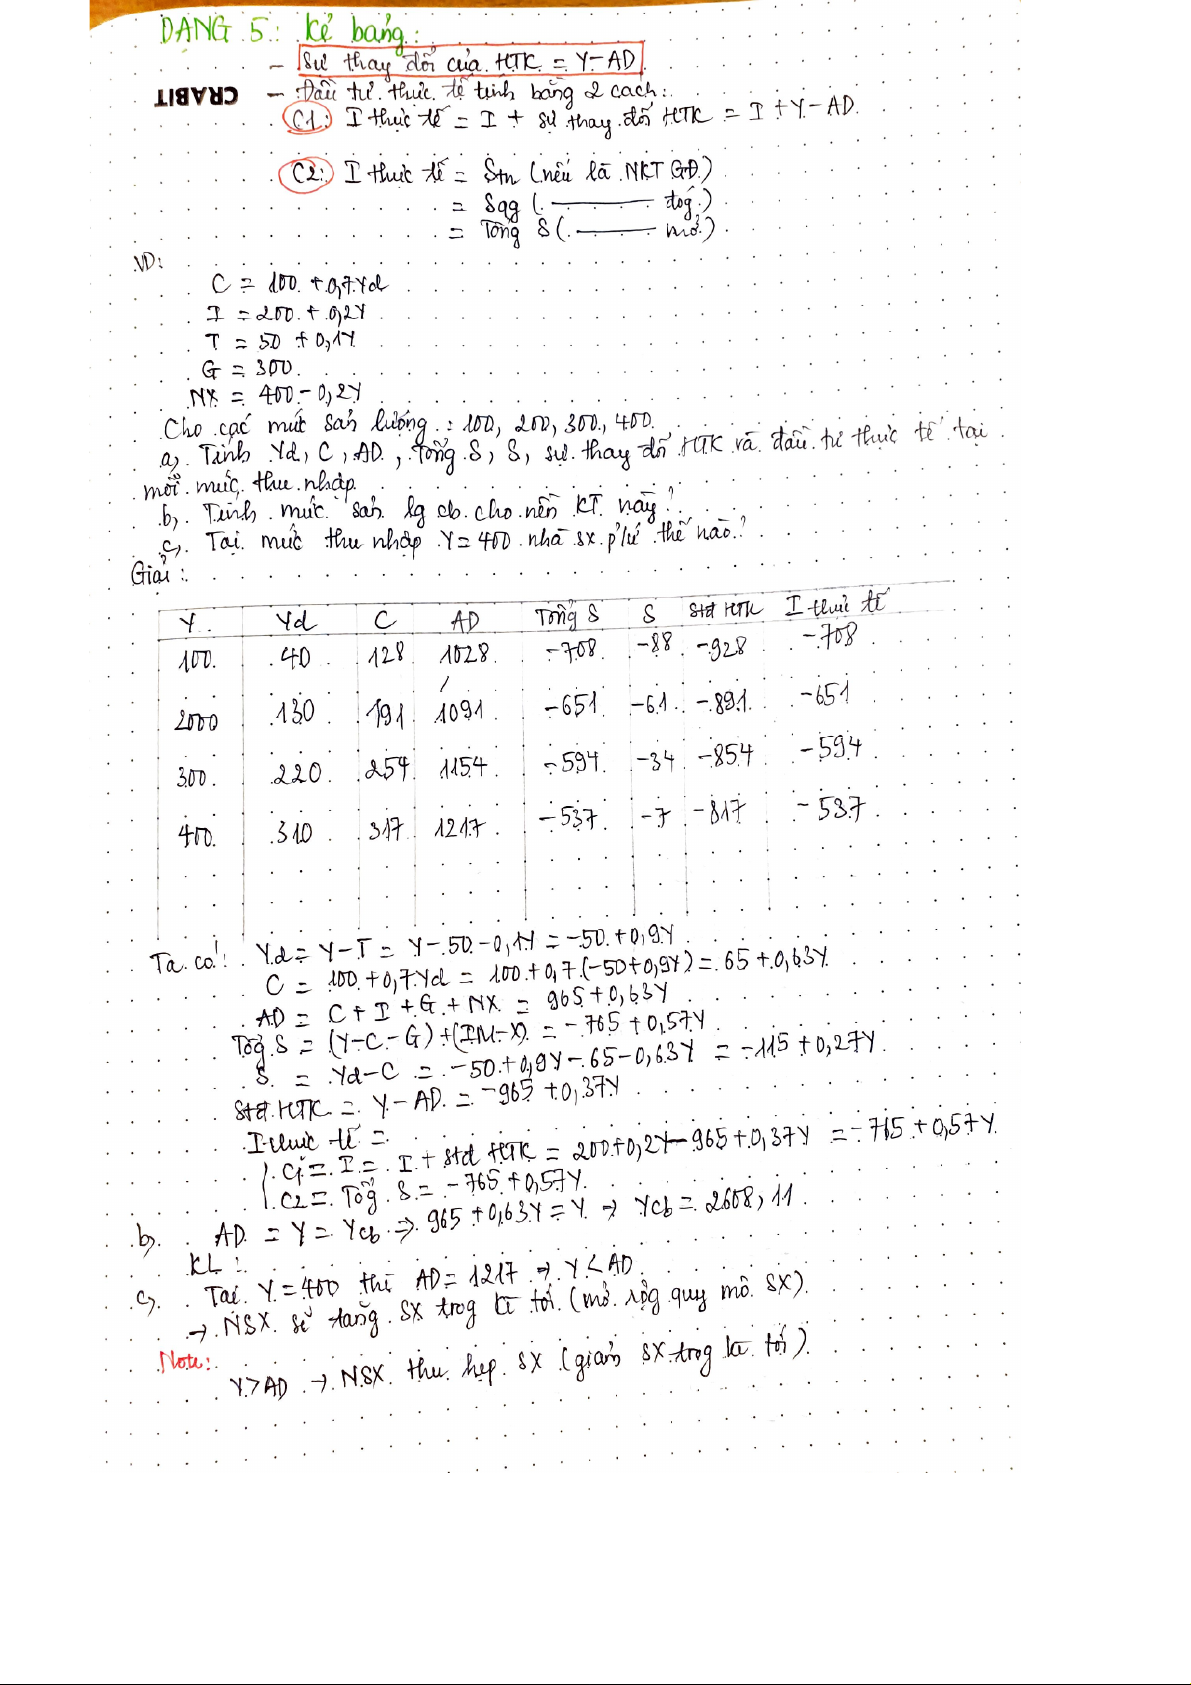 DẠNG 5: Kẻ bảng:
- Sự thay đổi của HTK = Y-AD
CRABIT
- Đầu tư thực tế tính bằng 2 cách:
C1: I thực tế = I + sự thay đổi HTK = I + Y - AD
C2: I thực tế = Stn (nếu là NKT GĐ)
= Sqg (——— đóg)
= Tổng S (——— mở)
VD:
C = 100 + 0,7Yd
I = 200 + 0,2Y
T = 50 + 0,1Y
G = 300
NX = 400 - 0,2Y
Cho các mức sản lượng: 100, 200, 300, 400
a, Tính Yd, C, AD, Tổng S, S, sự thay đổi HTK và đầu tư thực tế tại
mỗi mức thu nhập
b, Tính mức sản lg cb cho nền KT này?
c, Tại mức thu nhập Y = 400 nhà sx p/ứ thế nào?
Giải:
Y Yd C AD Tổng S S Stđ HTK I thực tế
100 40 128 1028 -708 -88 -928 -708
2000 130 191 1091 -651 -61 -891 -651
300 220 254 1154 -594 -34 -854 -594
400 310 317 1217 -537 -7 -817 -537
Ta có: Yd = Y - T = Y - 50 - 0,1Y = -50 + 0,9Y
C = 100 + 0,7Yd = 100 + 0,7(-50 + 0,9Y) = 65 + 0,63Y
AD = C + I + G + NX = 965 + 0,63Y
Tổg S = (Y - C - G) + (IM - X) = -765 + 0,57Y
S = Yd - C = -50 + 0,9Y - 65 - 0,63Y = -115 + 0,27Y
Stđ HTK = Y - AD = -965 + 0,37Y
I thực tế =
C1 = I = I + Stđ HTK = 200 + 0,2Y - 965 + 0,37Y = -765 + 0,57Y
C2 = Tổg S = -765 + 0,57Y
b, AD = Y = Ycb → 965 + 0,63Y = Y → Ycb = 2608,11
KL:
c, Tại Y = 400 thì AD = 1217 → Y < AD
→ NSX sẽ tăng SX trog kì tới (mở rộg quy mô SX)
Note:
Y > AD → NSX thu hẹp SX (giảm SX trog kì tới)